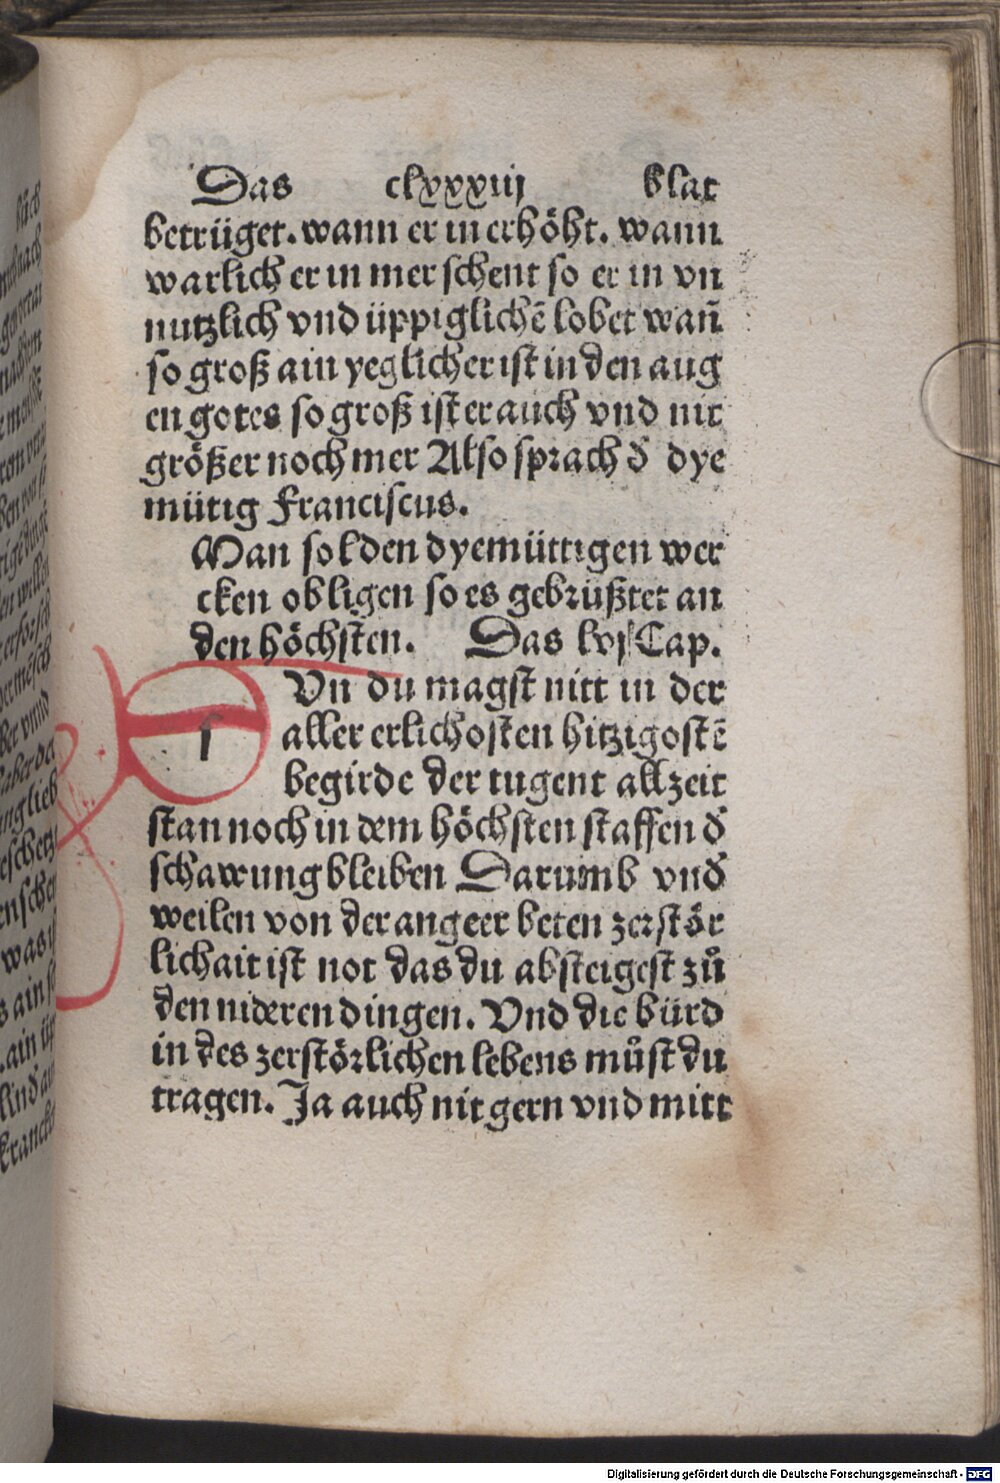 Das clxxxiij blat
betrüget. wann er in erhöht. wann
warlich er in mer schent so er in vn
nutzlich vnd üppiglichē lobet wañ
so groß ain yeglicher ist in den aug
en gotes so groß ist er auch vnd nit
größer noch mer Also sprach đ dye
mütig Franciscus.
Man sol den dyemüttigen wer
cken obligen so es gebrüßtet an
den höchsten. Das lvj Cap.
s Vn du magst nitt in der
aller erlichosten hitzigostē
begirde der tugent allzeit
stan noch in dem höchsten staffen đ
schawung bleiben Darumb vnđ
weilen von der angeer beten zerstör
lichait ist not das du absteigest zů
den nideren dingen. Vnd die bürd
in des zerstörlichen lebens můst du
tragen. Ja auch nit gern vnd mitt
Digitalisierung gefördert durch die Deutsche Forschungsgemeinschaft - DFG